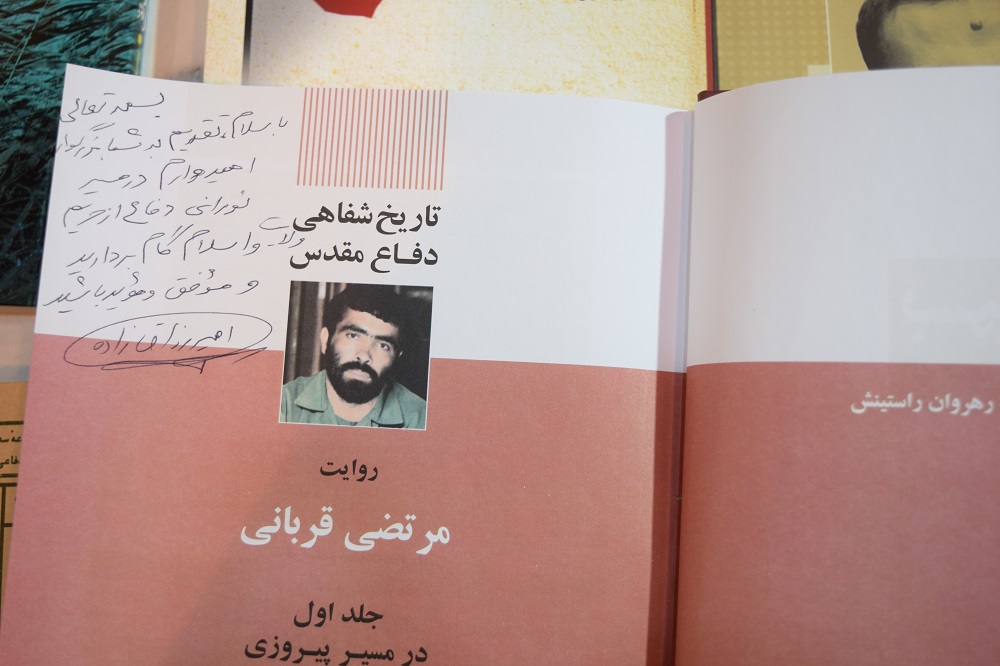 بسمه تعالی
با سلام، تقدیم به شما بزرگوار
امیدوارم در مسیر
نورانی دفاع از حریم
ولایت و اسلام گام بردارید
و موفق و مؤید باشید
امیر رزاق زاده
تاریخ شفاهی
دفاع مقدس
روایت
مرتضی قربانی
جلد اول
در مسیر پیروزی
رهروان راستینش